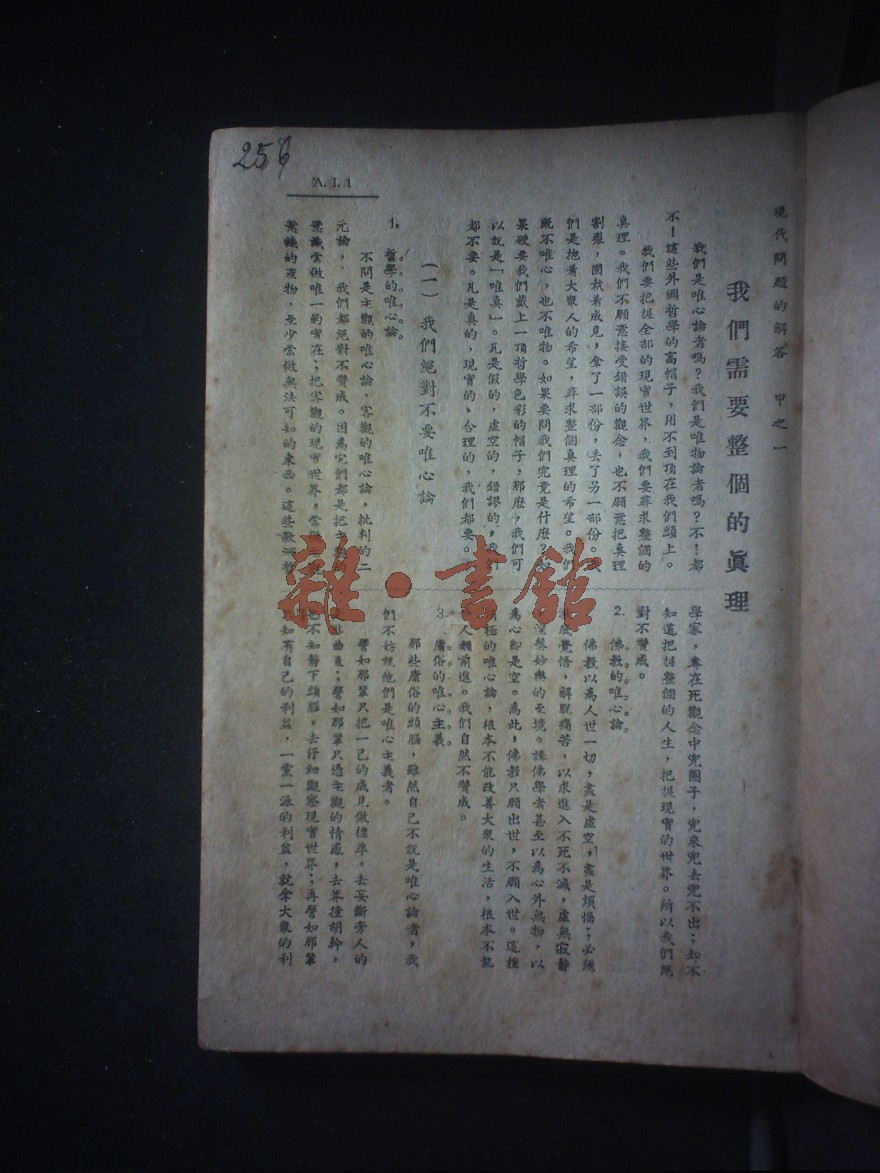 256
A. I. 1
現代問題的解答　甲之一
我們需要整個的眞理
我們是唯心論者嗎?我們是唯物論者嗎?不!都
不!這些外國哲學的高帽子,用不到頂在我們頭上。
我們要把握全部的現實世界,我們要尋求整個的
真理。我們不願意接受錯誤的觀念,也不願意把真理
割裂,固執着成見,拿了一部份,丟了另一部份。我
們是抱着大衆人的希望,尋求整個真理的希望。我們
既不唯心,也不唯物。如果要問我們究竟是什麽?如
果硬要我們戴上一項哲學色彩的帽子,那麽,我們可
以說是「唯真」。凡是假的,虛空的,錯謬的,我們
都不要。凡是真的,現實的,合理的,我們都要。
(一)我們絕對不要唯心論
1. 哲學的唯心論
不問是主觀的唯心論,客觀的唯心論,批判的二
元論,我們都絕對不贊成。因為它們都是把主觀的
意識當做唯一的實在;把客觀的現實世界,當做
意識的產物,至少當做無法可知的東西。這些歐洲哲
學家,專在死觀念中兜圈子,兜來兜去兜不出;却不
知道把握整個的人生,把握現實的世界。所以我們絕
對不贊成。
2. 佛教的唯心論
佛教以為人世一切,盡是虛空,盡是煩惱;必須
底覺悟,解脫痛苦,以求進入不死不滅,虛無寂靜
涅槃妙樂的至境。講佛學者甚至以為心外無物,以
為心卽是空。為此,佛教只願出世,不願入世。這種
極的唯心論,根本不能改善大衆的生活,根本不能
人類前進。我們自然不贊成。
3. 庸俗的唯心主義
那些庸俗的頭腦,雖然自己不說是唯心論者,我
們不妨說他們是唯心主義者。
譬如那輩只把一己的成見做標準,去妄斷旁人的
非曲直;譬如那輩只憑主觀的情感,去莽撞胡幹,
也不知靜下頭腦,去仔細觀察現實世界;再譬如那輩
知有自己的利益,一黨一派的利益,就拿大衆的利
雜·書館